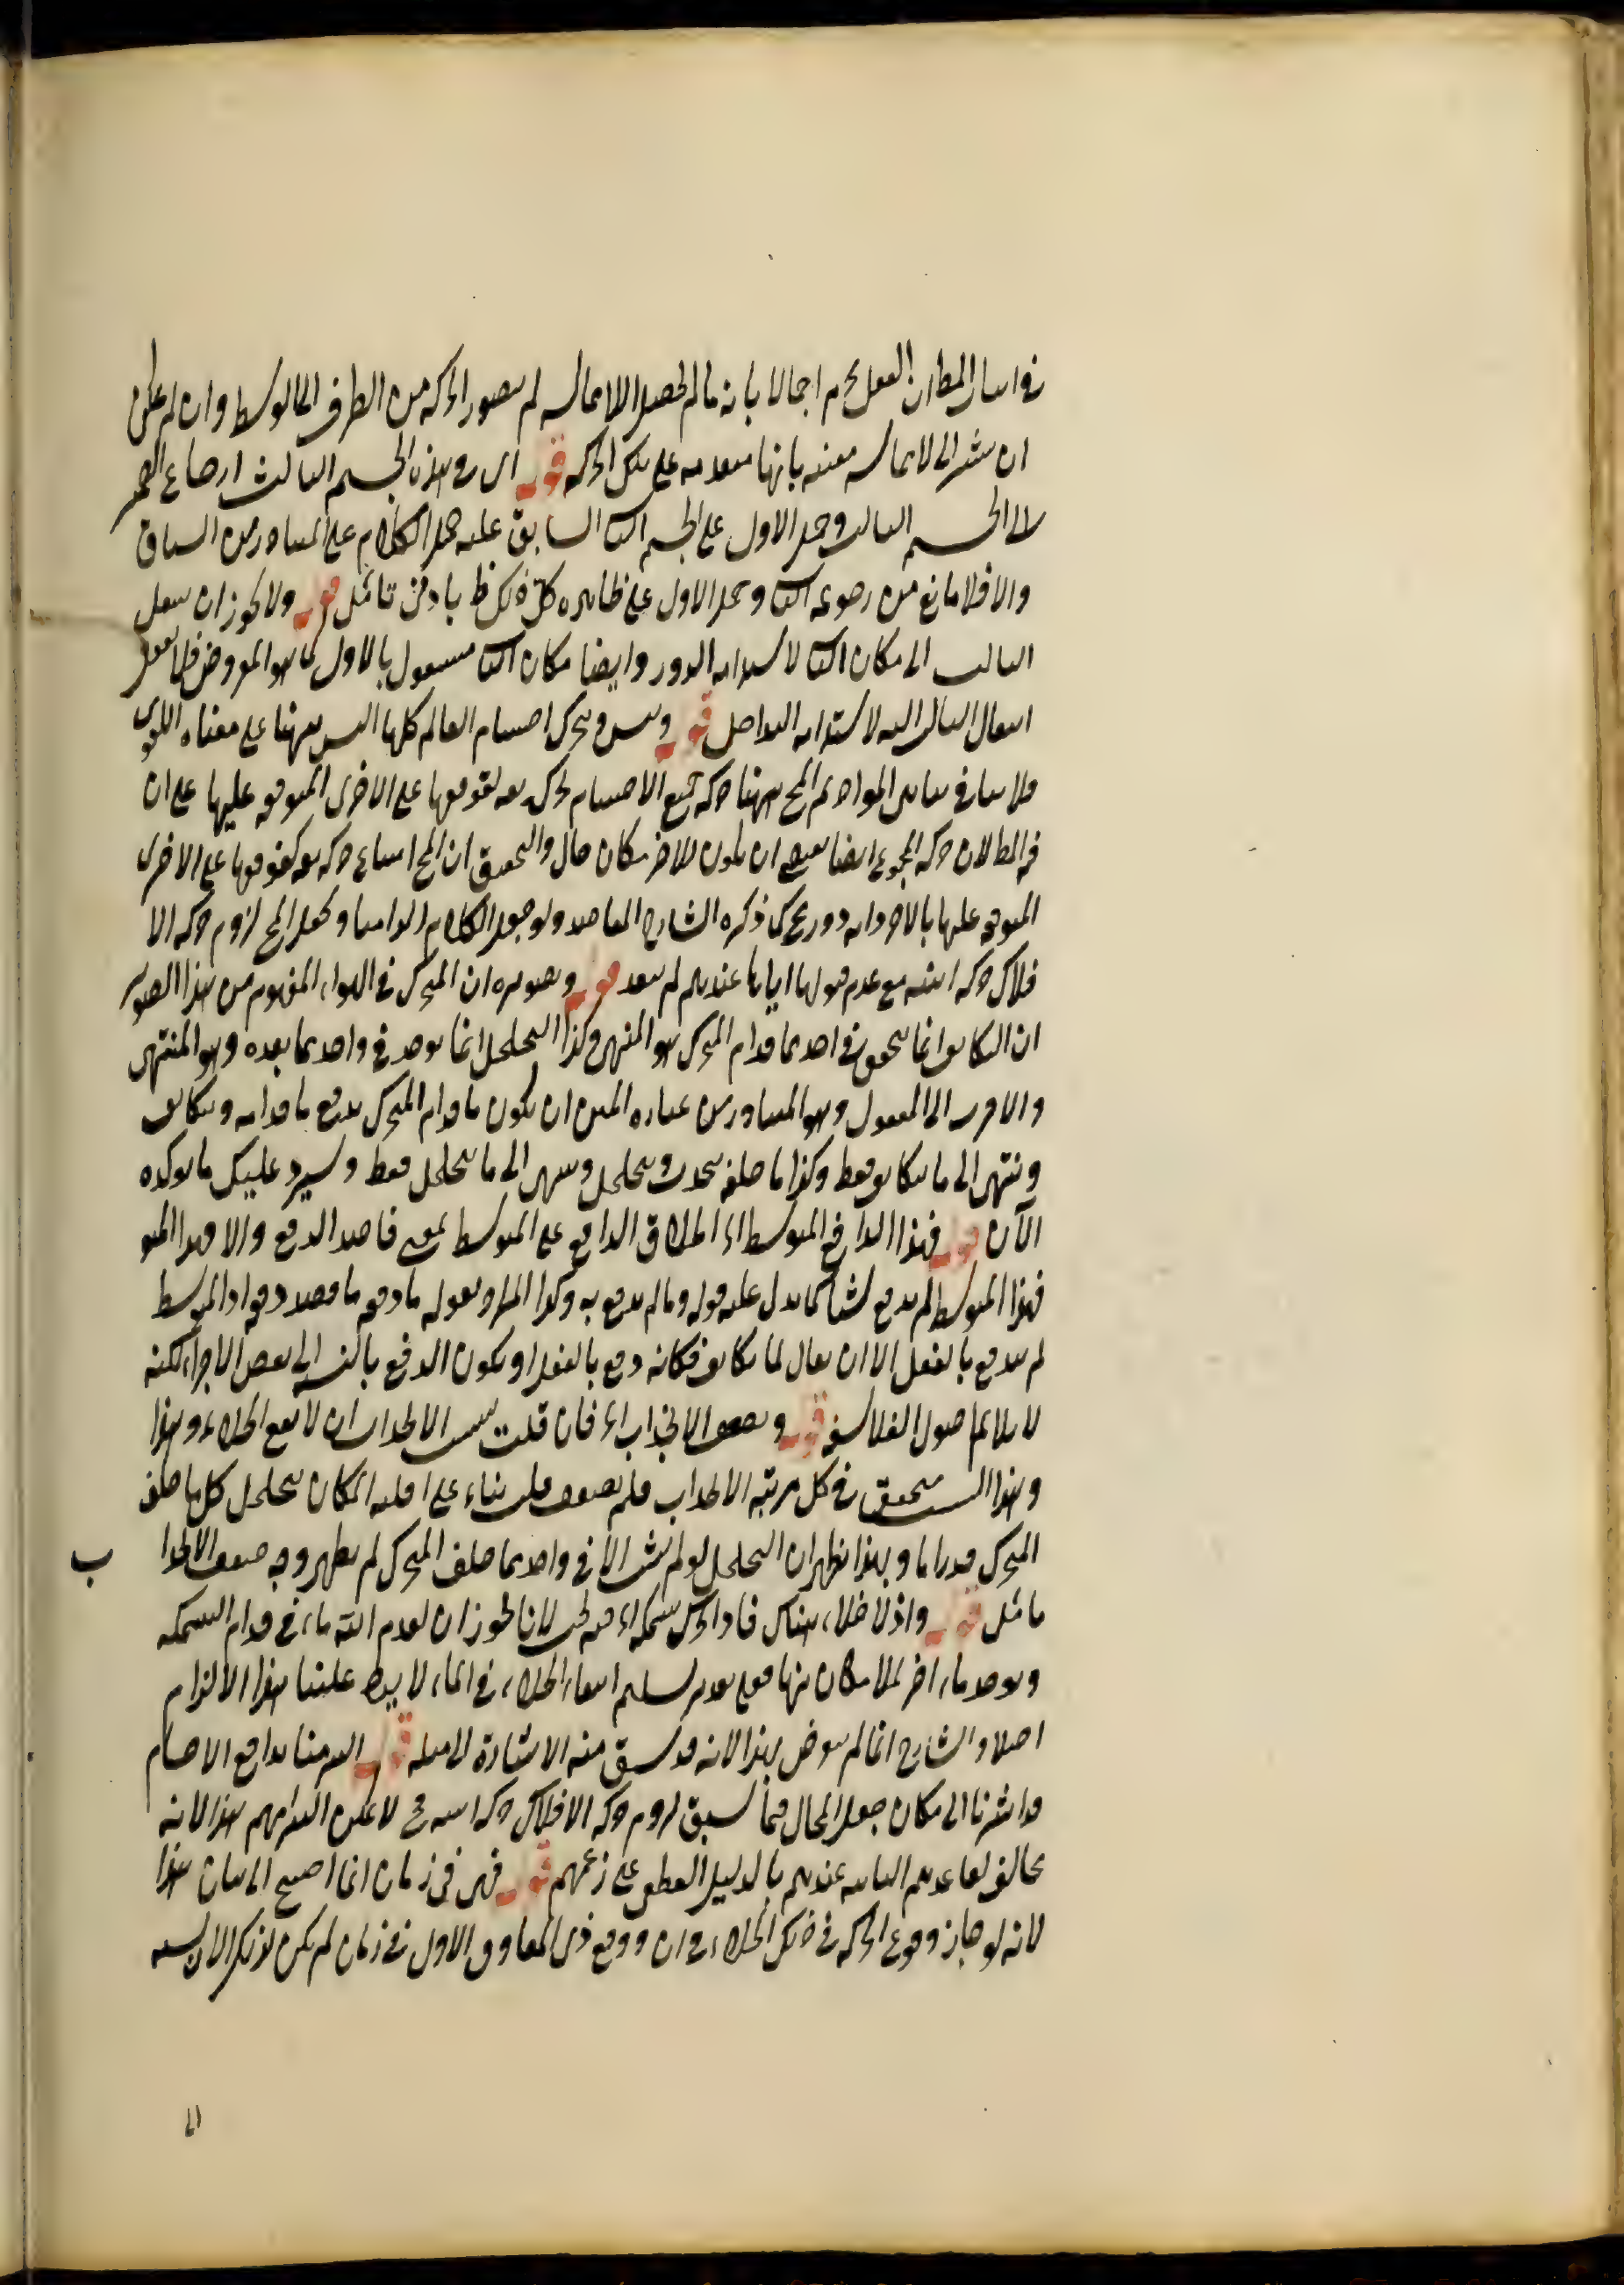 في اثبات المط ان العقل يحكم اجمالا بانه ما لم يحصل الاستحالة لم يتصور الحركة من الطرف الى الوسط وان لم يمكن
ان يشير الى الاستحالة معينه بانها متقدمة على تلك الحركة قوله اى وهذا الجسم الثالث ارجاع الضمير
الى الجسم الثالث وحمل الاول على الجسم الثاني السابق عليه حمل الكلام على المتبادر من السياق
والا فلا مانع من رجوعه الثاني وحمل الاول على ظاهره كل ذلك ظ بادنى تأمل قوله ولا يجوز ان ينتقل
الثالث الى مكان الثاني لاستلزامه الدور وايضا مكان الثاني مشغول بالاول كما هو المفروض فلا يعقل
انتقال الثالث اليه لاستلزامه التداخل قوله وتحرك اجسام العالم كلها ليس ههنا على معناه اللغوى
فلا ينافي المواد ثم المح ههنا حركة جميع الاجسام بحركة بقة لتوقفها على الاخرى المتوقفة عليها على ان
في بطلان حركة المجموع ايضا ان يكون للاخر مكان خال والتحقيق ان المح امتناع حركة بقة لتوقفها على الاخرى
المتوقفة عليها بالاخر وانه دور مح كما ذكره الشارح المقاصد ولو جعل الكلام الزاميا وجعل المح لزوم حركة الا
فلاك حركة اينية مع عدم قبولها اياها عندهم لم يبعد قوله وتصويره ان المتحرك في الهواء المفهوم من هذا التصوير
ان التكاثف انما يتحقق في احد مما قدام المتحرك هو المنتهى وكذا التخلخل انما يوجد في واحد مما بعده وهو المنتهى
والاقرب الى المعقول وهو المتبادر من عبارة المتن ان يكون ما قدام المتحرك يدفع ما قدامه ويتكاثف
وينتهى الى ما يتكاثف فقط وكذا ما خلفه ينجذب ويتخلخل وينتهى الى ما يتخلخل فقط وسيرد عليك ما يؤكده
الآن قوله فهذا الدافع المتوسط اه اطلاق الدافع على المتوسط بمعنى قاصد الدفع والا فهذا المتو
فهذا المتوسط لم يدفع شيئا كما يدل عليه قوله وما لم يدفع به وكذا المراد بقوله ما دفعه ما قصد دفعه اذ المتوسط
لم يندفع بالفعل الا ان يقال لما تكاثف فكانه دفع بالفعل او يكون الدفع بالنسبة الى بعض الاجزاء لكنه
لا يلائم اصول الفلاسفة قوله ويضعف الانجذاب اه فان قلت سبب الانجذاب ان لا يقع الخلاء وهذا
وهذا السبب متحقق في كل مرتبة الانجذاب فلم يضعف قلت بناء على اقلية امكان تخلخل كل ما خلف
المتحرك قدرا ما وبهذا يظهر ان التخلخل لو لم يثبت الا في واحد مما خلف المتحرك لم يظهر وجه ضعف الانجذا
ب
تأمل قوله واذ لا خلاء هناك فاذا تحرك سمكة اه فيه بحث لانا نجوز ان يعدم الله ماء في قدام السمكة
ويوجد ماء اخر لملأ مكان منها فعلى تقدير تسليم انتفاء الخلاء في الماء لا يرد علينا هذا الالزام
اصلا والشارح انما لم يتعرض لهذا لانه قد سبق منه الاشارة الى مثله قوله التزمنا تدافع الاجسام
قد اشرنا الى مكان جعل المحال فيما سبق لزوم حركة الافلاك حركة اينية فح لا يمكن التزامهم هذا لانه
يخالف قاعدتهم الثابتة عندهم بالدليل القطعى على زعمهم قوله فهى في زمان انما احتيج الى بيان هذا
لانه لو جاز وقوع الحركة في ذلك الخلاء في ان ووقع ذى المعاوق الاول في زمان لم يكن لذلك الان نسبة
الى